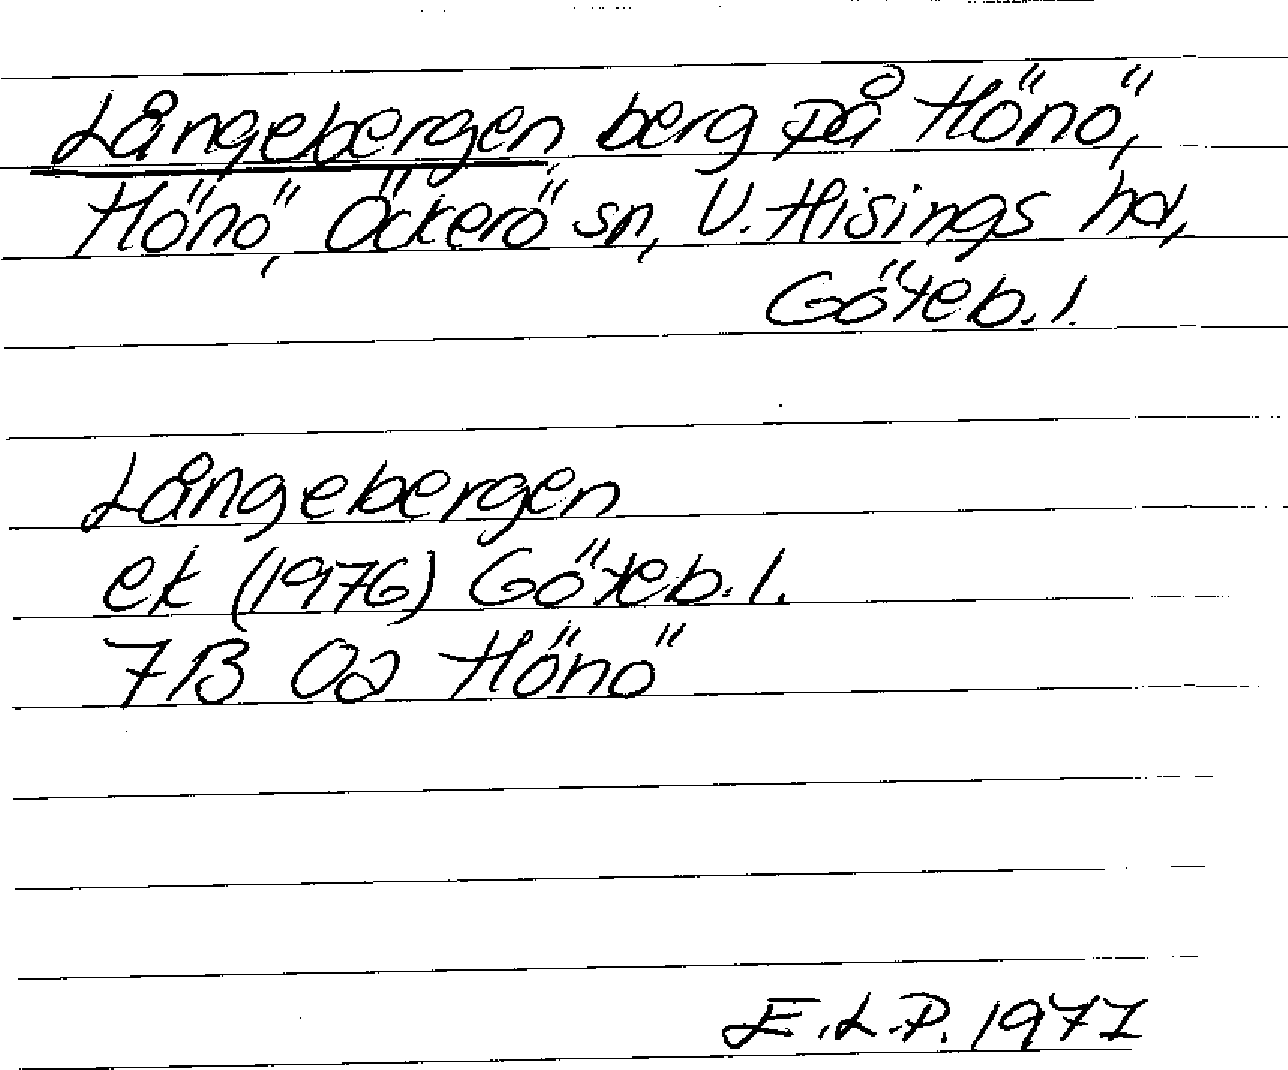 Långebergen berg på Hönö,
Hönö, Öckerö sn, V. Hisings hd,
Göteb. l.
Långebergen
ek (1976) Göteb. l.
7B 0a Hönö
E.L.P. 1977